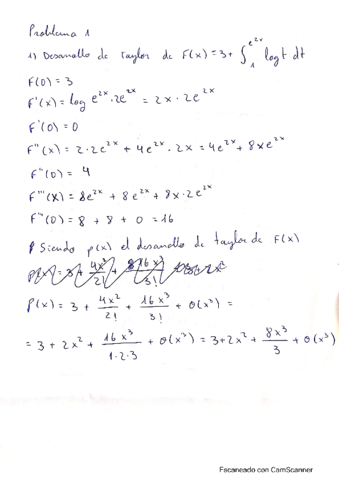 Problema 1
1) Desarrollo de taylor de F(x) = 3 + ∫₁^(e^(2x)) log t dt
F(0) = 3
F'(x) = log e^(2x) · 2e^(2x) = 2x · 2e^(2x)
F'(0) = 0
F''(x) = 2·2e^(2x) + 4e^(2x)·2x = 4e^(2x) + 8xe^(2x)
F''(0) = 4
F'''(x) = 8e^(2x) + 8e^(2x) + 8x·2e^(2x)
F'''(0) = 8 + 8 + 0 = 16
Siendo p(x) el desarrollo de taylor de F(x)
P(x) = 3 + 4x²/2! + 16x³/3! + o(x³) =
= 3 + 2x² + 16x³/1·2·3 + o(x³) = 3+2x² + 8x³/3 + o(x³)
Escaneado con CamScanner